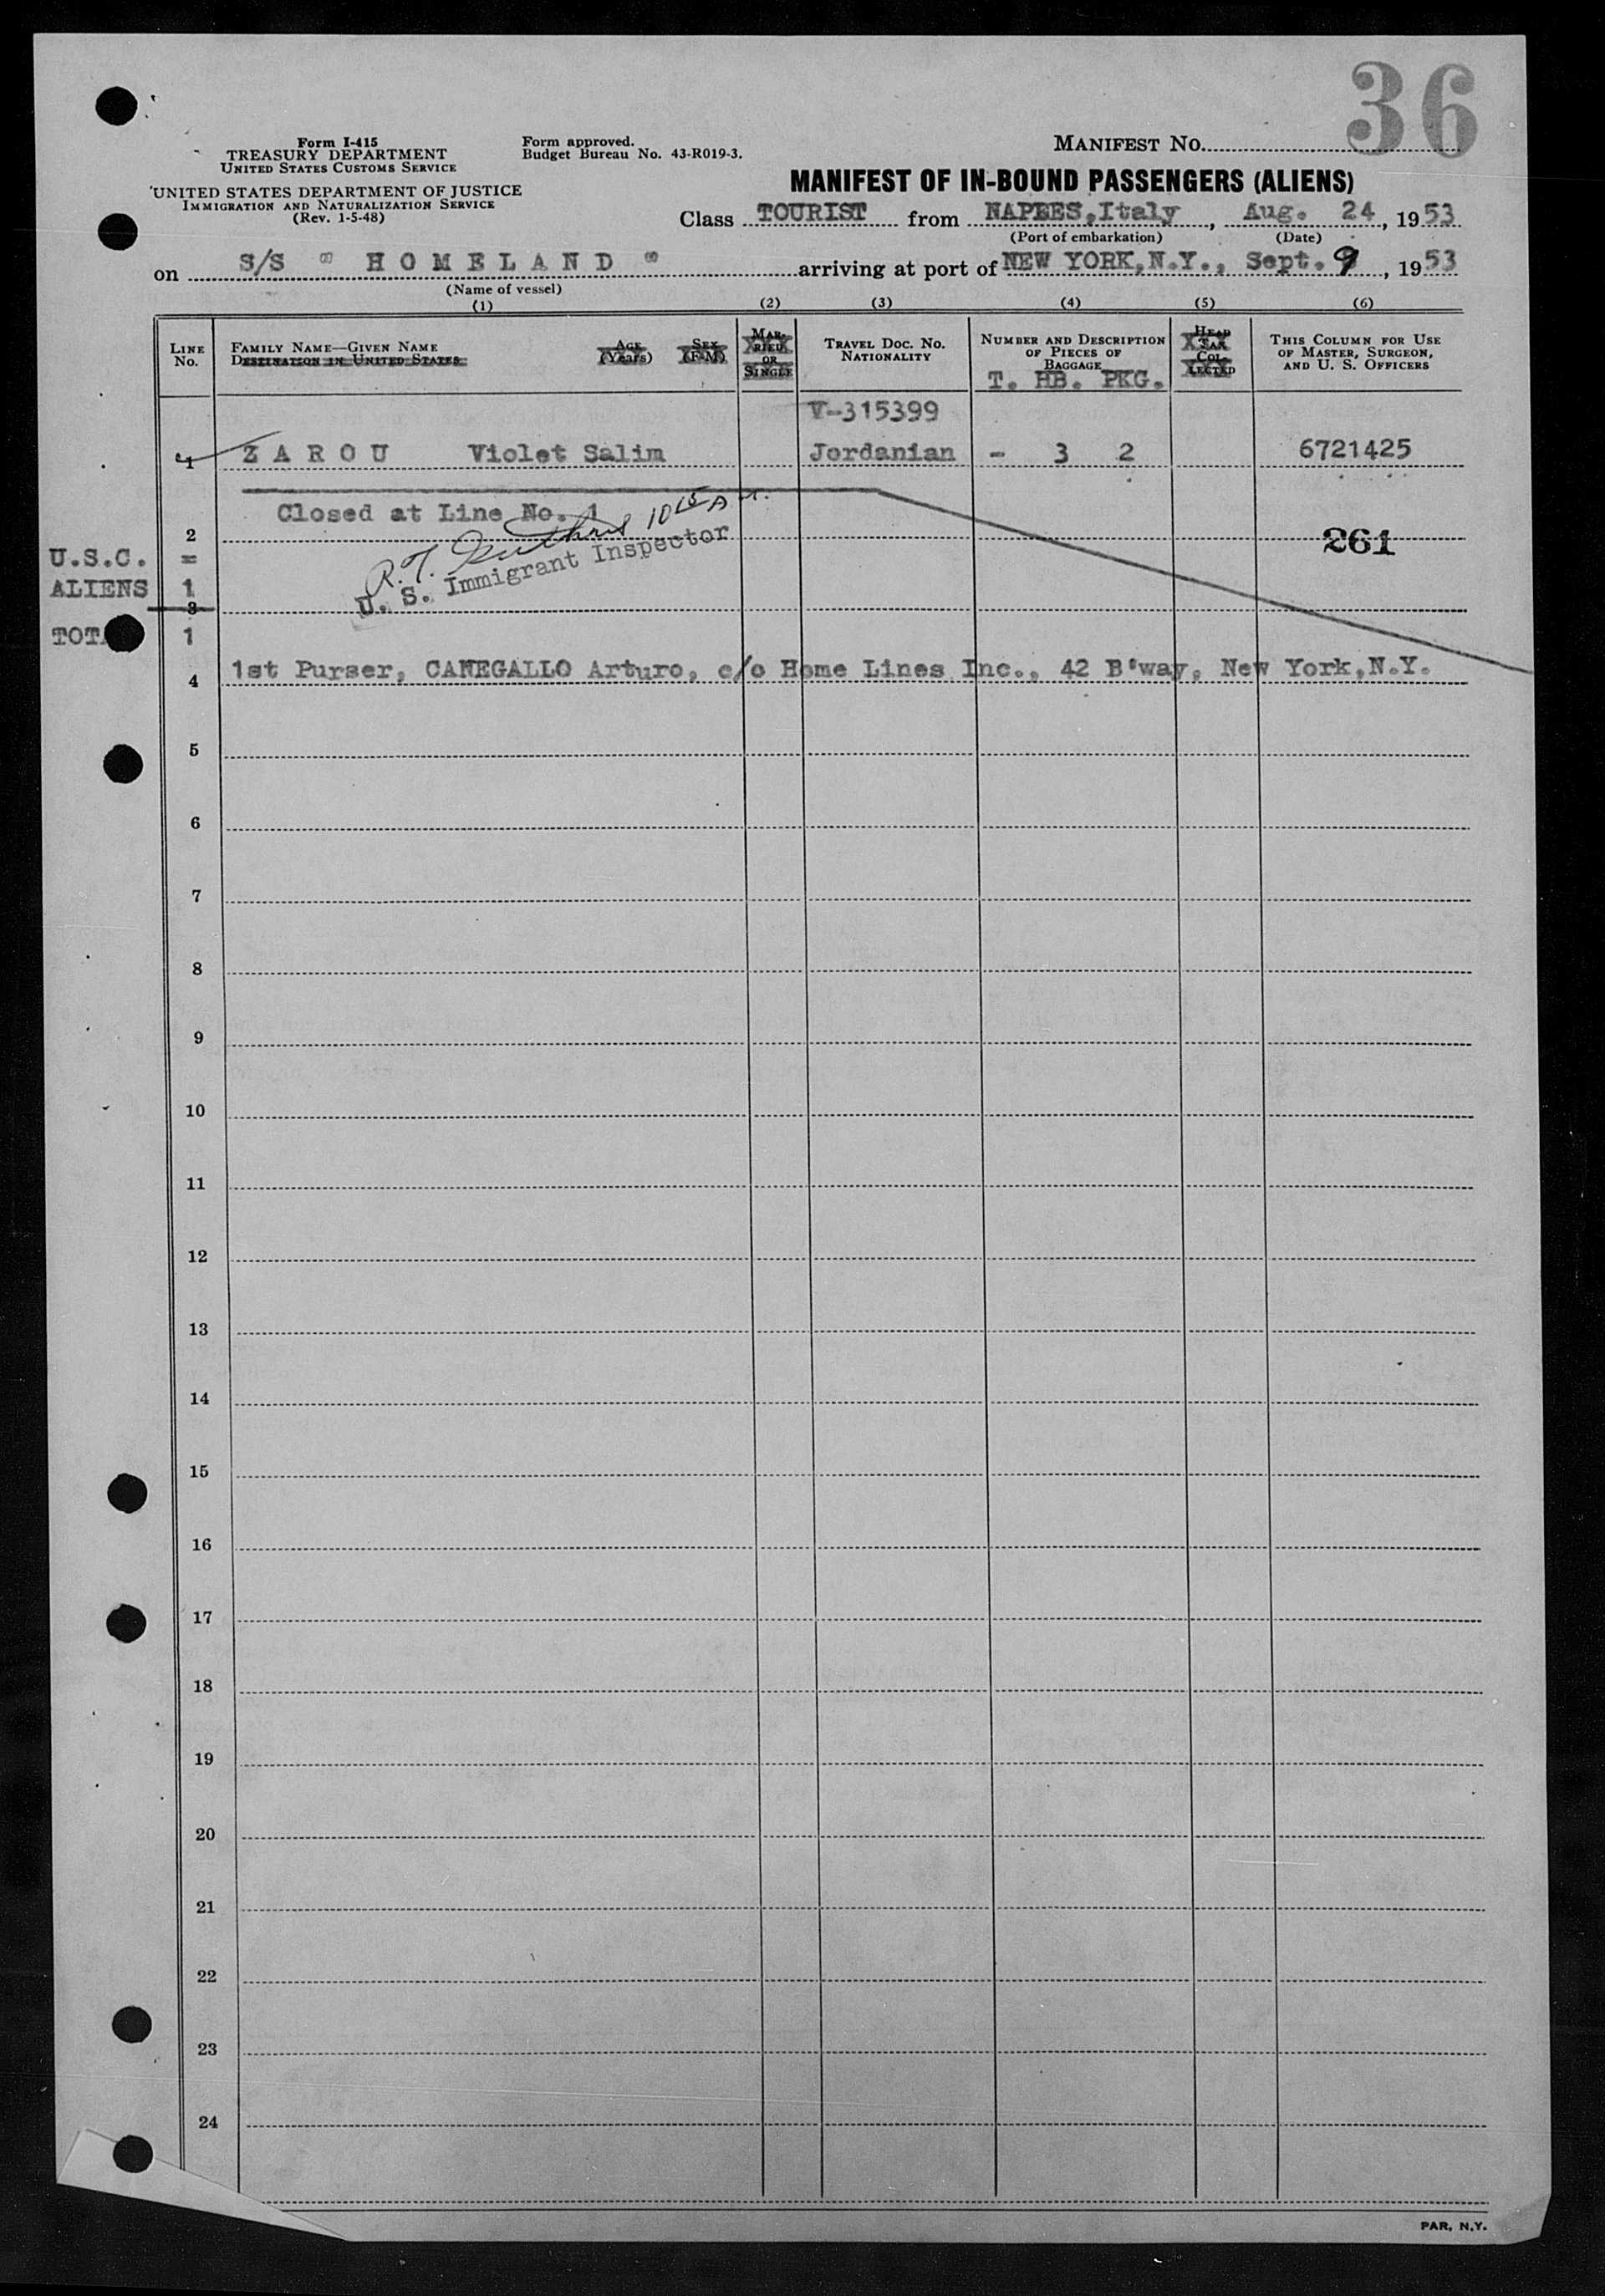 36
Form I-415
TREASURY DEPARTMENT
UNITED STATES CUSTOMS SERVICE
UNITED STATES DEPARTMENT OF JUSTICE
IMMIGRATION AND NATURALIZATION SERVICE
(Rev. 1-5-48)
Form approved.
Budget Bureau No. 43-R019-3.
MANIFEST NO.
MANIFEST OF IN-BOUND PASSENGERS (ALIENS)
Class TOURIST from NAPLES,Italy, Aug. 24, 1953
(Port of embarkation) (Date)
on S/S " H O M E L A N D " arriving at port of NEW YORK,N.Y., Sept. 9, 1953
(Name of vessel)
(1) (2) (3) (4) (5) (6)
LINE NO.
FAMILY NAME—GIVEN NAME
DESTINATION IN UNITED STATES
AGE (Years)
SEX (F-M)
MARRIED OR SINGLE
TRAVEL DOC. NO. NATIONALITY
NUMBER AND DESCRIPTION OF PIECES OF BAGGAGE
T. HB. PKG.
HEAD TAX COLLECTED
THIS COLUMN FOR USE OF MASTER, SURGEON, AND U. S. OFFICERS
V-315399
1 Z A R O U Violet Salim Jordanian - 3 2 6721425
Closed at Line No. 1
2 261
R.T. 10 15 A.M.
U. S. Immigrant Inspector
U.S.C. =
ALIENS 1
3
TOT 1
4 1st Purser, CANEGALLO Arturo, c/o Home Lines Inc., 42 B'way, New York,N.Y.
5
6
7
8
9
10
11
12
13
14
15
16
17
18
19
20
21
22
23
24
PAR, N.Y.